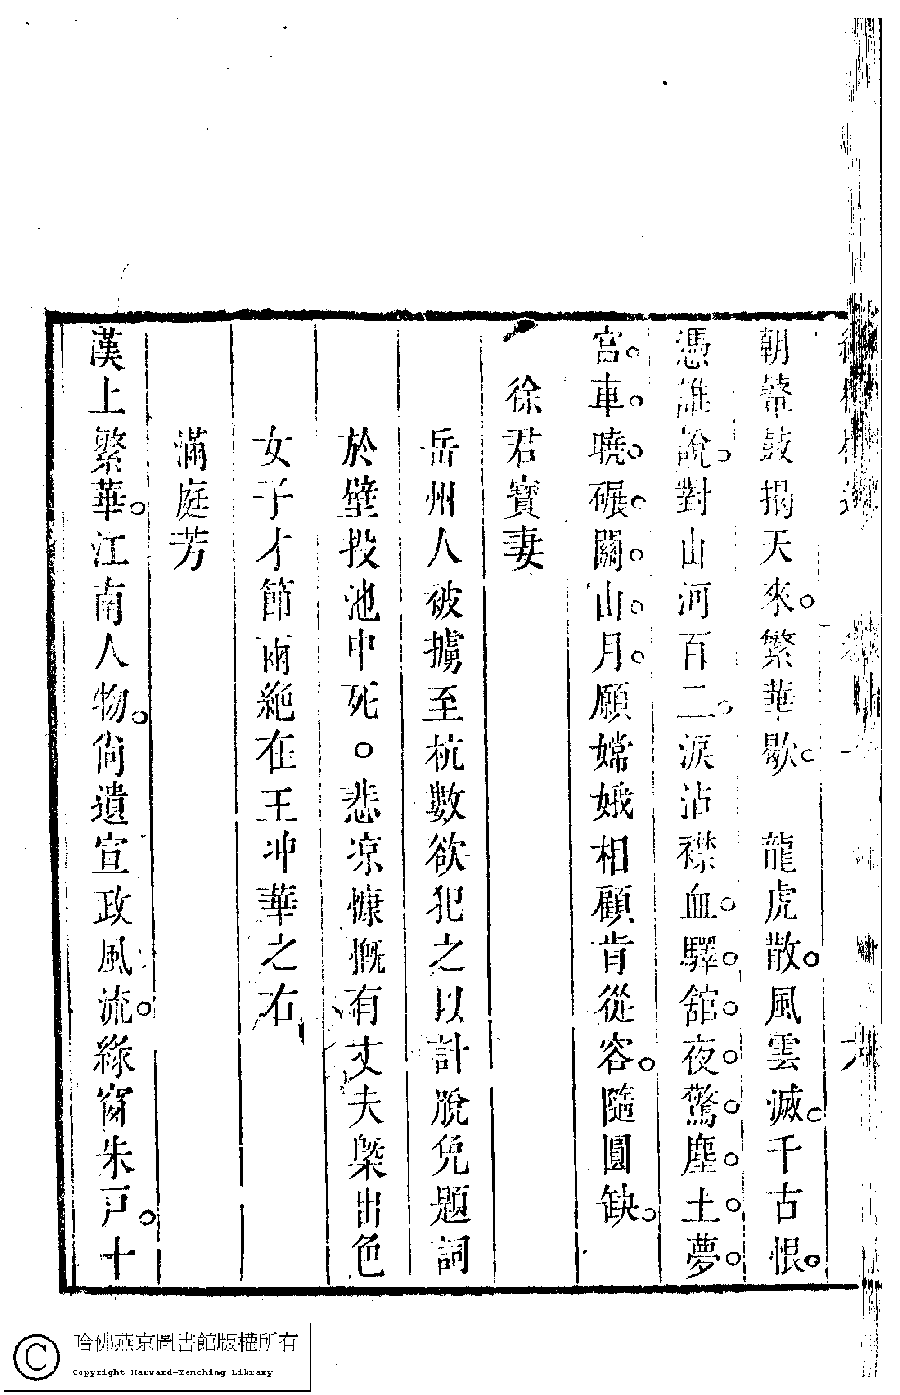 朝鼙鼓揭天來。繁華歇。　龍虎散。風雲滅。千古恨。
憑誰說。對山河百二。淚沾襟血。驛舘夜驚塵土夢。
宮車曉碾關山月。願嫦娥相顧肯從容。隨圓缺。
徐君寶妻
岳州人被擄至杭數欲犯之以計脫免題詞
於壁投池中死。悲凉慷慨有丈夫槩出色
女子才節兩絶在王冲華之右
滿庭芳
漢上繁華。江南人物。尙遺宣政風流。綠窗朱戸。十
哈佛燕京圖書館版權所有
Copyright Harvard-Yenching Library